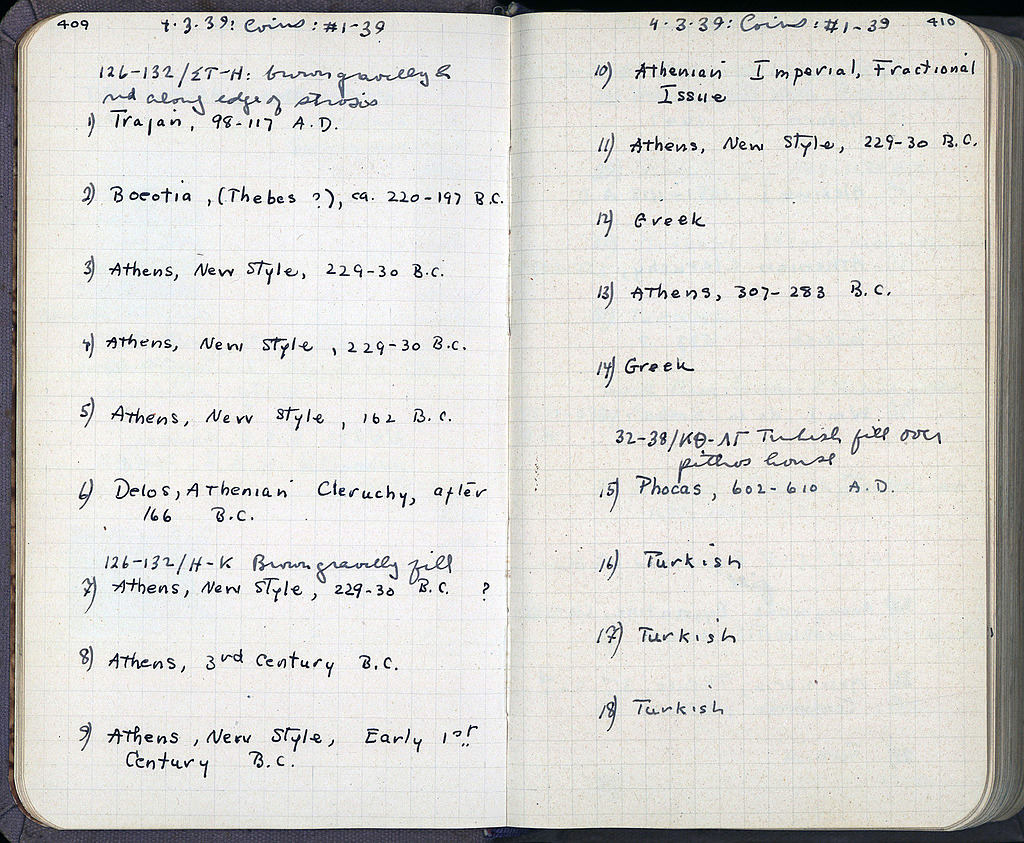 409
4.3.39: Coins: #1-39
126-132/ΣΤ-Η: brown gravelly &
red along edge of strosis
1) Trajan, 98-117 A.D.
2) Boeotia, (Thebes ?), ca. 220-197 B.C.
3) Athens, New Style, 229-30 B.C.
4) Athens, New Style, 229-30 B.C.
5) Athens, New Style, 162 B.C.
6) Delos, Athenian Cleruchy, after
166 B.C.
126-132/Η-Κ Brown gravelly fill
7) Athens, New Style, 229-30 B.C. ?
8) Athens, 3rd Century B.C.
9) Athens, New Style, Early 1st
Century B.C.
4.3.39: Coins: #1-39
410
10) Athenian Imperial, Fractional
Issue
11) Athens, New Style, 229-30 B.C.
12) Greek
13) Athens, 307-283 B.C.
14) Greek
32-38/ΚΘ-ΛΓ Turkish fill over
pithos house
15) Phocas, 602-610 A.D.
16) Turkish
17) Turkish
18) Turkish